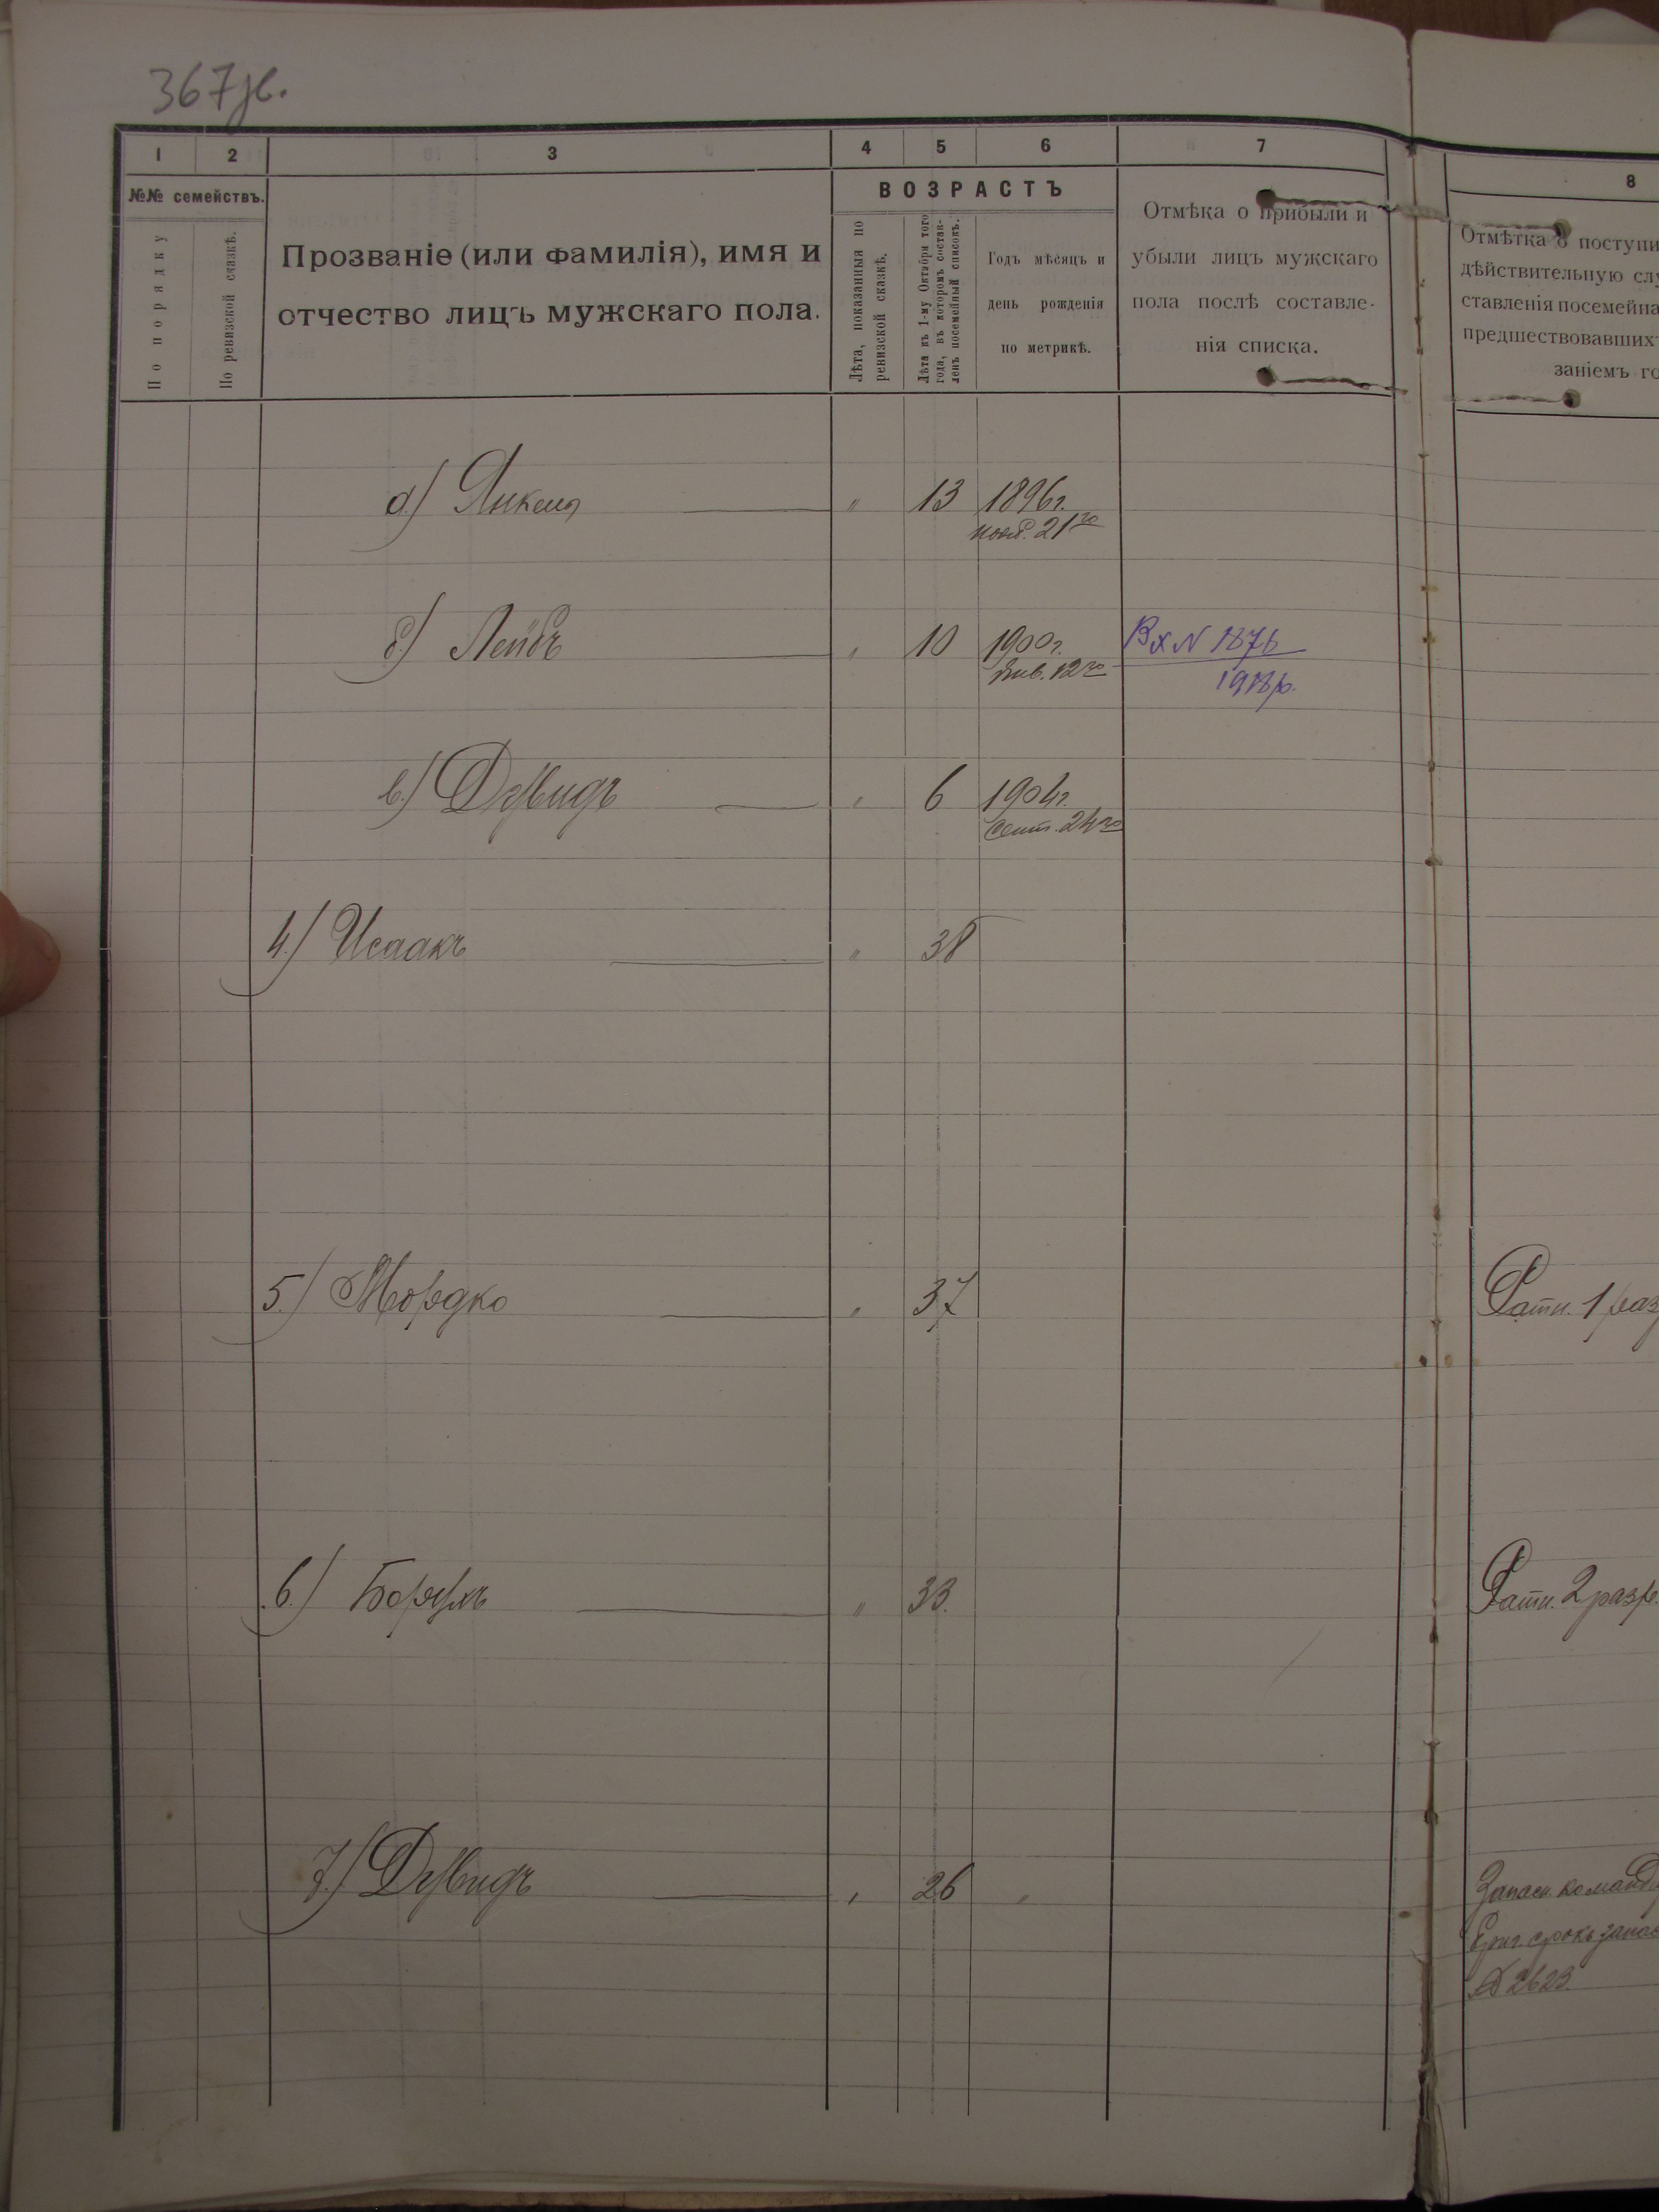 367 зв.
1 2 3 4 5 6 7 8
№№ семействъ.
По порядку
По ревизской сказкѣ.
Прозваніе (или фамилія), имя и
отчество лицъ мужскаго пола.
ВОЗРАСТЪ
Лѣта, показанныя по
ревизской сказкѣ.
Лѣта къ 1-му Октября того
года, въ которомъ состав-
ленъ посемейный списокъ.
Годъ мѣсяцъ и
день рожденія
по метрикѣ.
Отмѣка о прибыли и
убыли лицъ мужскаго
пола послѣ составле-
нія списка.
Отмѣтка о поступи
дѣйствительную слу
ставленія посемейна
предшествовавших
заніемъ го
а) Янкель " 13 1896г.
нояб. 21го
б) Лейбъ " 10 1900г. Вх N 1876
Янв. 12го 1918р.
в) Давидъ " 6 1904г.
Сент. 24го
4) Исаакъ " 38
5) Мордко " 37 Ратн. 1 раз
6) Борухъ " 33. Ратн. 2 разр.
7) Давидъ " 26 "
Запасн. команд
срокъ запас
№ 2623.